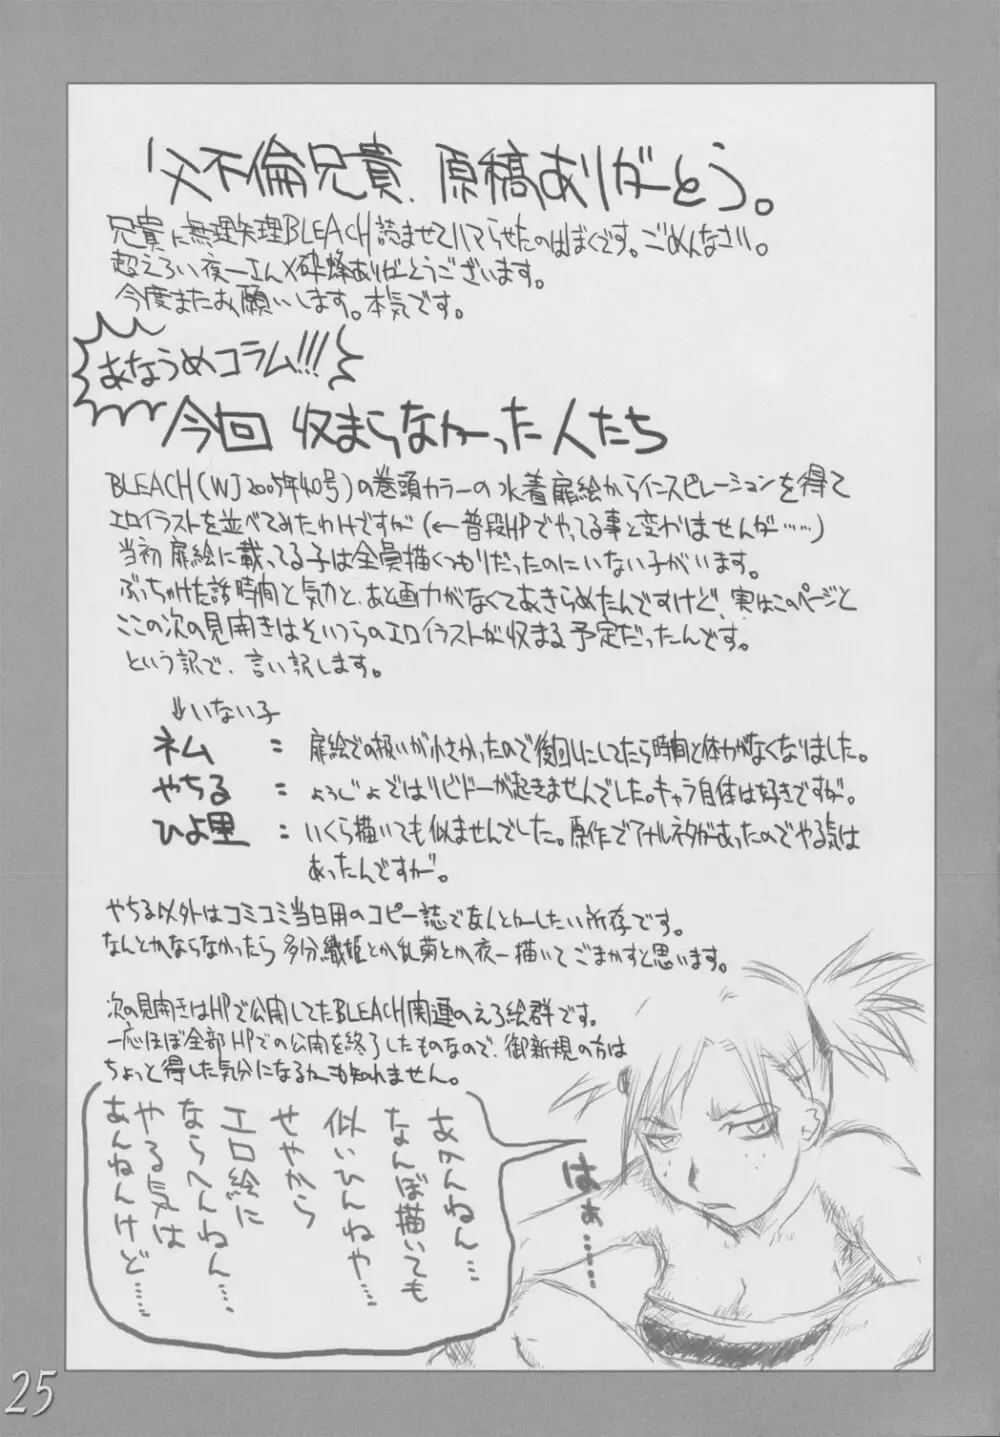 父不倫兄貴、原稿ありがーとう。
兄貴に無理矢理BLEACH読ませてハマらせたのはぼくです。ごめんなさい。
超えろい夜一さん×砕蜂ありがとうございます。
今度またお願いします。本気です。
あなうめコラム!!!
今回 収まらなかった人たち
BLEACH(WJ2005年40号)の巻頭カラーの水着扉絵からインスピレーションを得て
エロイラストを並べてみたわけですが(←普段HPでやってる事と変わりませんが……)
当初扉絵に載ってる子は全員描くつもりだったのにいない子がいます。
ぶっちゃけた話時間と気力と、あと画力がなくてあきらめたんですけど、実はこのページと
ここの次の見開きはそいつらのエロイラストが収まる予定だったんです。
という訳で、言い訳します。
↓いない子
ネム : 扉絵での扱いが小さかったので後回しにしてたら時間と体力がなくなりました。
やちる : ょぅじょではリビドーが起きませんでした。キャラ自体は好きですが。
ひよ里 : いくら描いても似ませんでした。原作でアナルネタがあったのでやる気は
あったんですが。
やちる以外はコミコミ当日用のコピー誌でなんとかしたい所存です。
なんとかならなかったら多分織姫とか乱菊とか夜一描いてごまかすと思います。
次の見開きはHPで公開してたBLEACH関連のえろ絵群です。
一応ほぼ全部HPでの公開を終了したものなので、御新規の方は
ちょっと得した気分になるかも知れません。
あかんねん…
なんぼ描いても
似いひんねや…
せやから
エロ絵に
ならへんねん…、
やる気は
あんねんけど……
はぁ……
25